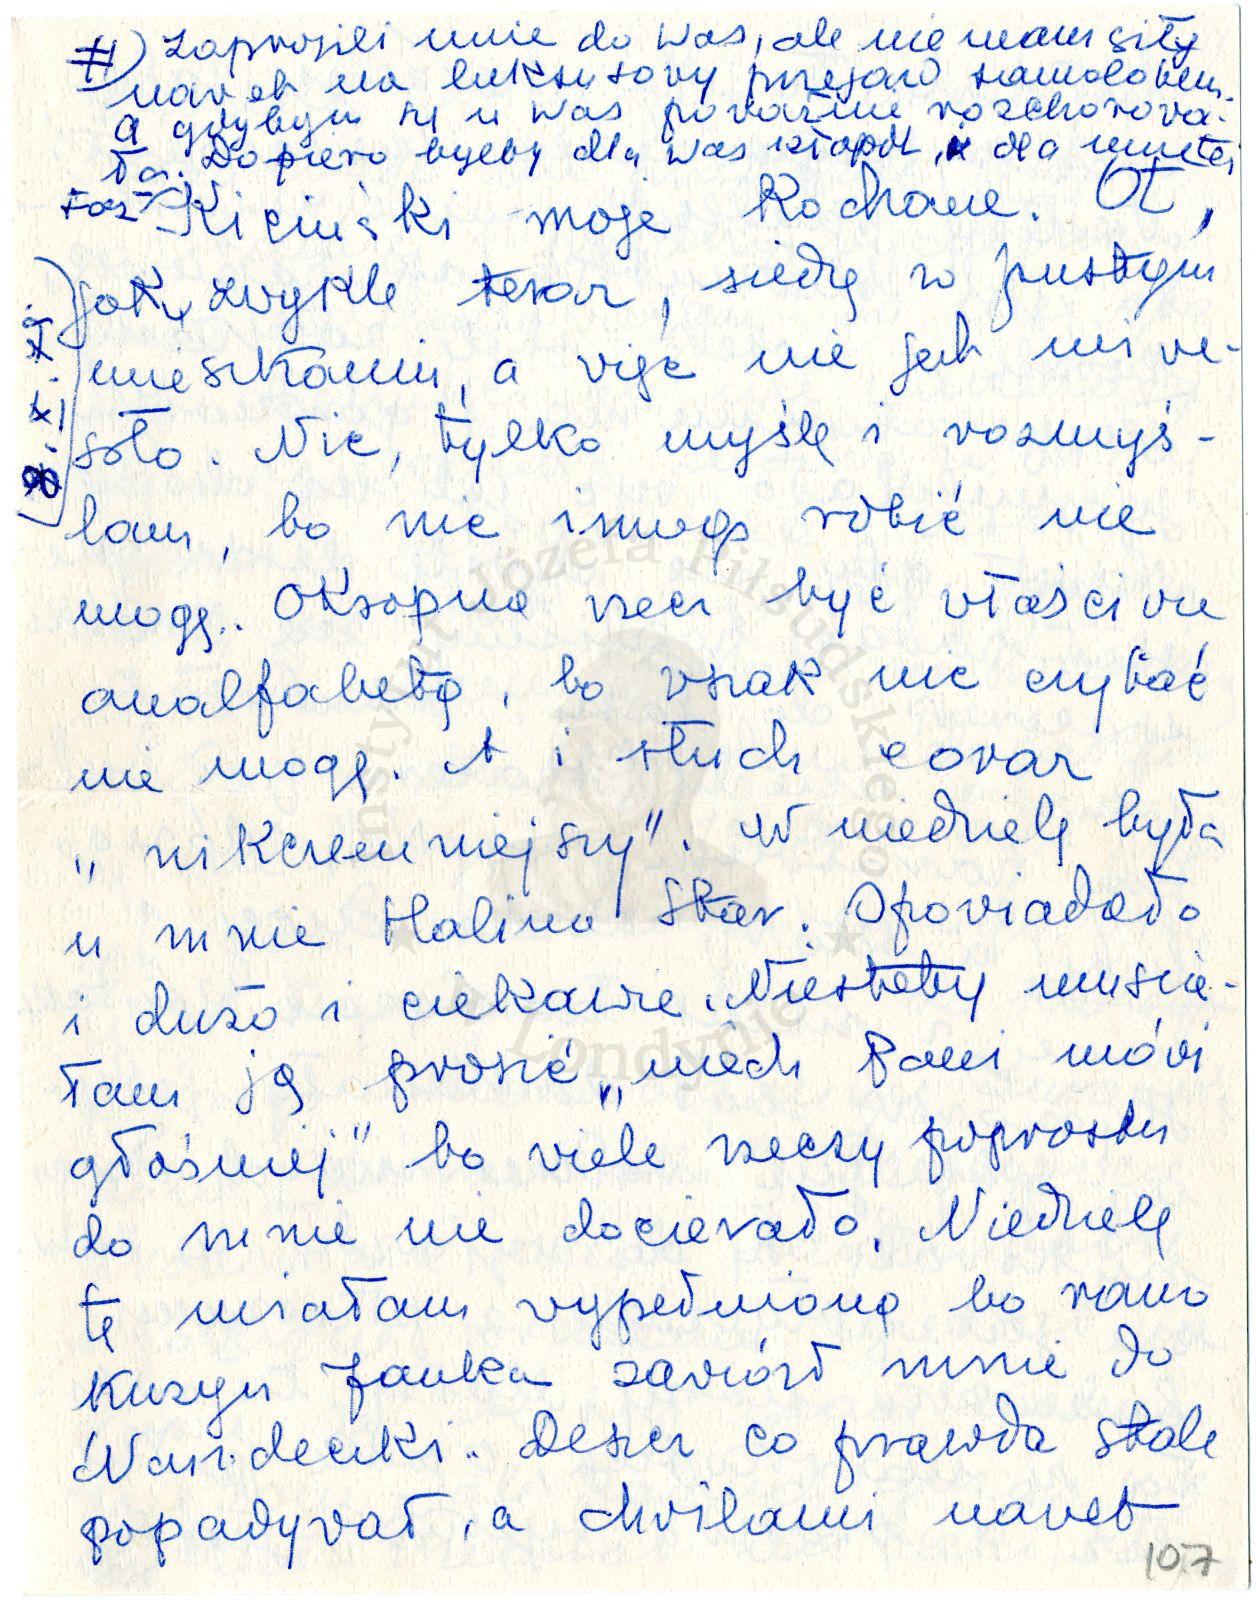 #) Zaprosili mnie do Was, ale nie mam siły
nawet na luksusowy przejazd samolotem.
A gdybym się u Was poważnie rozchorowa-
ła. Dopiero byłby dla Was kłopot, i dla mnie też
Kiciuśki moje Kochane. Ot,
jak zwykle teraz, siedzę w pustym
mieszkaniu, a więc nie jest mi we-
soło. Nic, tylko myślę i rozmyś-
lam, bo nic innego robić nie
mogę. Okropna rzecz być właściwie
analfabetą, bo wszak nic czytać
nie mogę. A i słuch coraz
„nikczemniejszy”. W niedzielę była
u mnie Halina Star. Opowiadała
i dużo i ciekawie. Niestety musia-
łam ją prosić „niech Pani mówi
głośniej” bo wiele rzeczy poprostu
do mnie nie docierało. Niedzielę
tę miałam wypełnioną bo rano
Kuzyn Janka zawiózł mnie do
Deszcz co prawda stale
popadywał, a chwilami nawet
107
Instytut Józefa Piłsudskiego
w Londynie